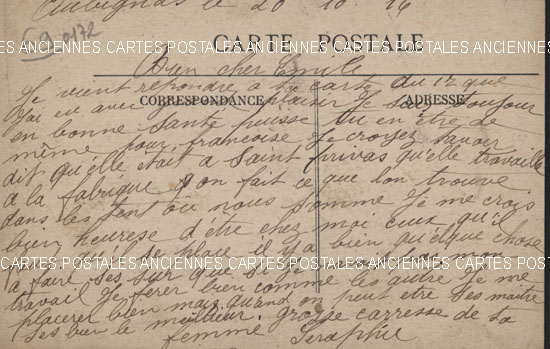 Aubignas le 20 10 16
59 0172
CARTE POSTALE
CARTES POSTALES ANCIENNES CARTES POSTALES ANCIENNES CARTES POSTALES ANCIENNES
Bien cher Emile
Je vient repondre a ta carte du 12 que
CORRESPONDANCE ADRESSE
j'ai eu avec plaisir Je suis toujour
en bonne santé puisse tu en etre de
même pour francoise Je croyez t'avoir
dit qu'elle était a Saint privas qu'elle travaille
a la fabrique on fait ce que lon trouve
dans les tent où nous somme Je me crois
bien heurese d'être chez moi ceux qu'il
place il y a bien quelque chose
CARTES POSTALES ANCIENNES CARTES POSTALES ANCIENNES CARTES POSTALES ANCIENNES
a faire
travail Je ferer bien comme les autre Je me
placerer bien mais quand on peut etre ses maitre
ses bien le meilleur. grosse carresse de ta
femme Seraphie